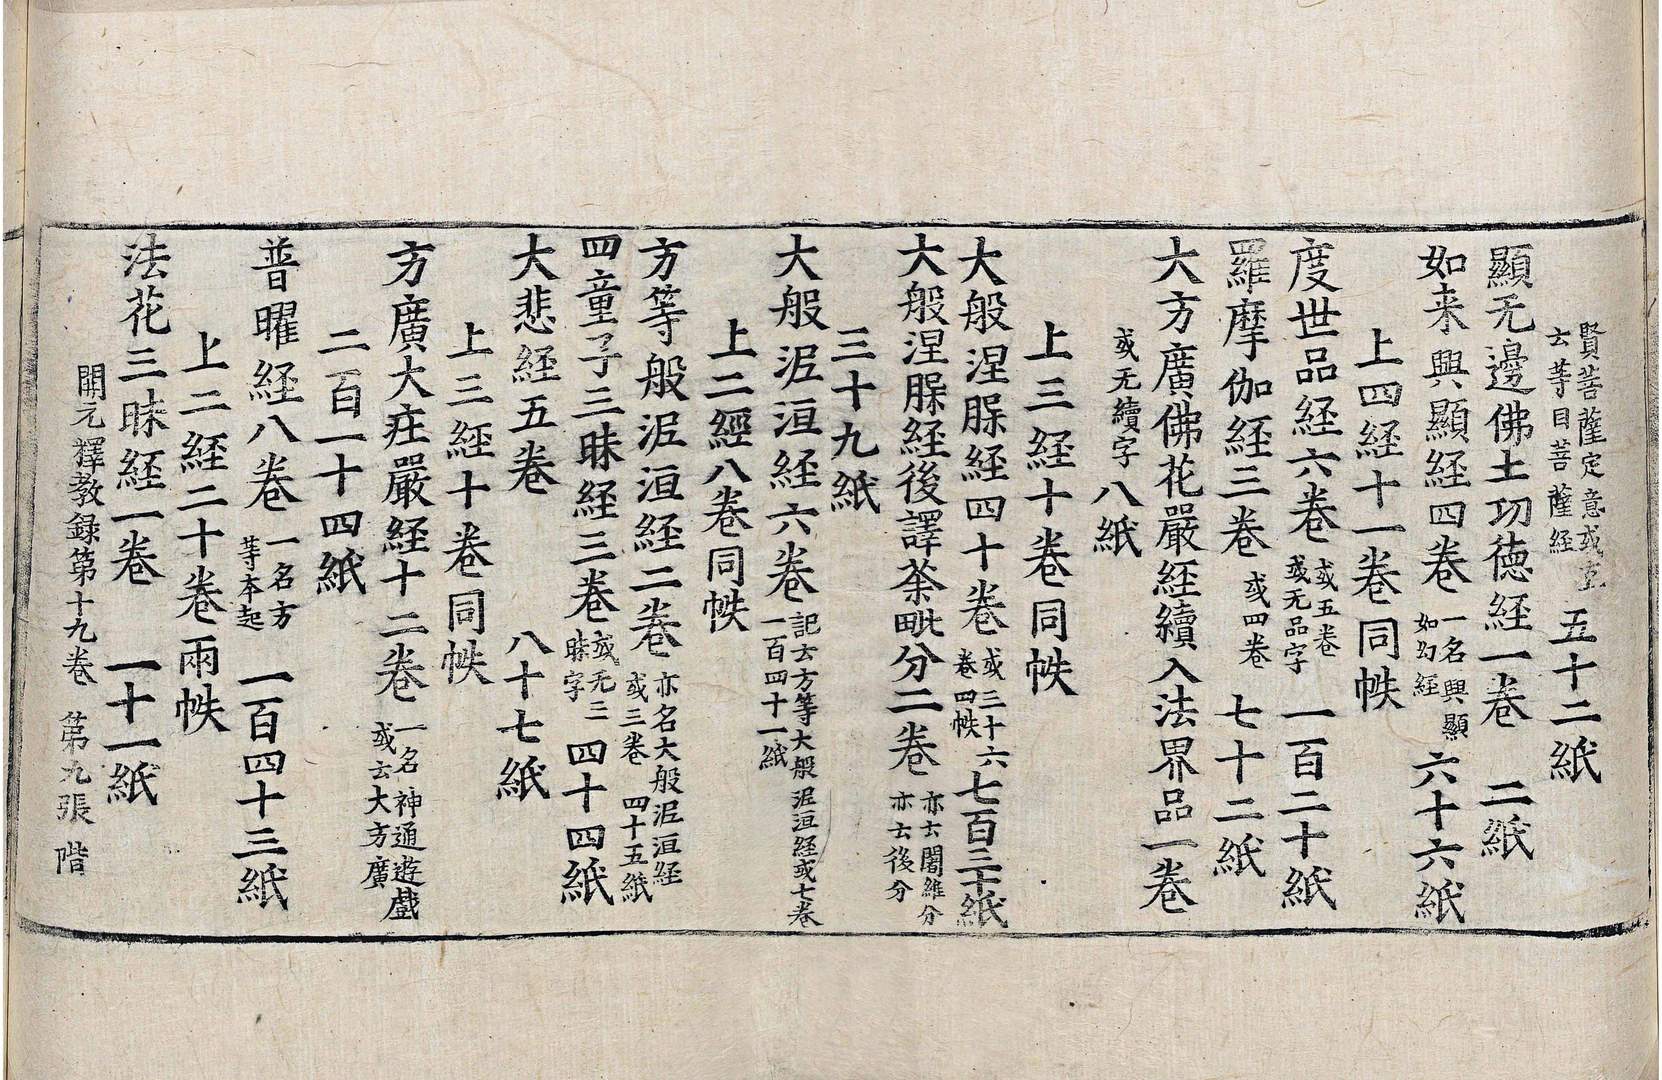 賢菩薩定意或直云等目菩薩経 五十二紙
顯无邊佛土功德経一卷 二紙
如来興顯経四卷 一名興顯如幻経 六十六紙
上四経十一卷同帙
度世品経六卷 或五卷或无品字 一百二十紙
羅摩伽経三卷 或四卷 七十二紙
大方廣佛花嚴経續入法界品一卷
或无續字 八紙
上三経十卷同帙
大般涅槃経四十卷 或三十六卷四帙 七百三十紙
大般涅槃経後譯荼毗分二卷 亦云闍維分亦云後分
三十九紙
大般泥洹経六卷 記云方等大般泥洹経或七卷一百四十一紙
上二經八卷同帙
方等般泥洹経二卷 亦名大般泥洹経或三卷 四十五紙
四童子三昧経三卷 或无三昧字 四十四紙
大悲経五卷 八十七紙
上三経十卷同帙
方廣大疰嚴経十二卷 一名神通遊戲或云大方廣
二百一十四紙
普曜経八卷 一名方等本起 一百四十三紙
上二経二十卷兩帙
法花三昧経一卷 一十一紙
開元釋教録第十九卷 第九張 階